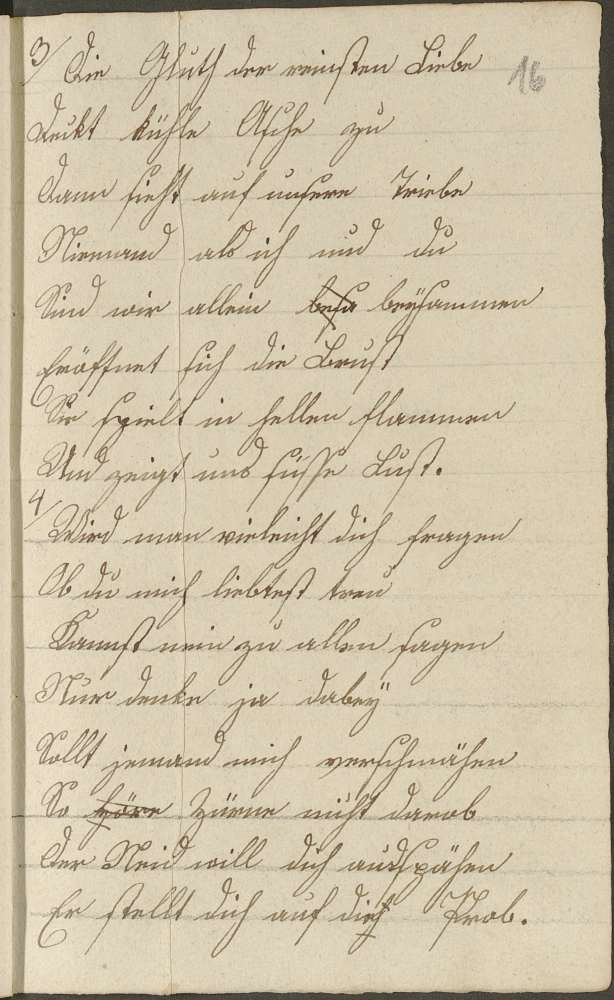 3/ Die Gluth der reinsten Liebe
16
Deckt kühle Asche zu
Dann sieht auf unsere Triebe
Niemand als ich und du
Sind wir allein beysammen
Eröffnet sich die Brust
Sie spielt in hellen Flammen
Und zeigt uns süsse Lust.
4/ Wird man vieleicht dich fragen
Ob du mich liebtest treu
Kannst nein zu allen sagen
Nur denke ja dabey
Sollt jemand mich verschmähen
So zürne nicht darob
Der Neid will dich ausspähen
Er stellt dich auf die Prob.